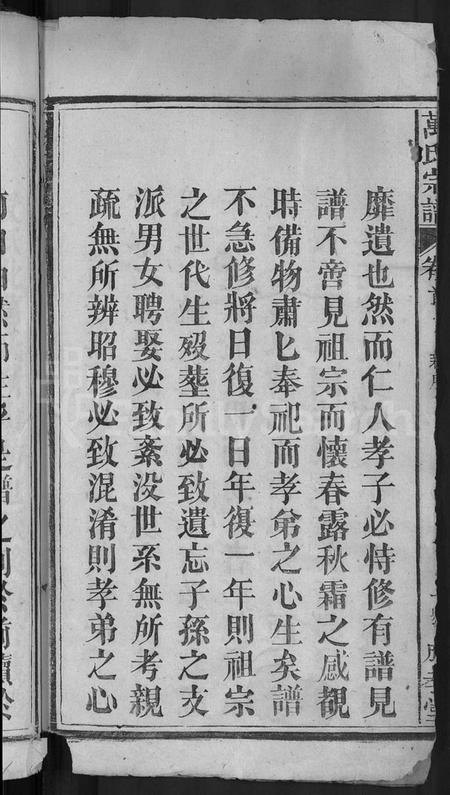 萬氏宗譜
卷首
靡遺也然而仁人孝子必恃修有譜見
譜不啻見祖宗而懷春露秋霜之感覩
時備物肅匕奉祀而孝弟之心生矣譜
不急修將日復一日年復一年則祖宗
之世代生殁塟所必致遺忘子孫之支
派男女聘娶必致紊没世系無所考親
疏無所辨昭穆必致混淆則孝弟之心